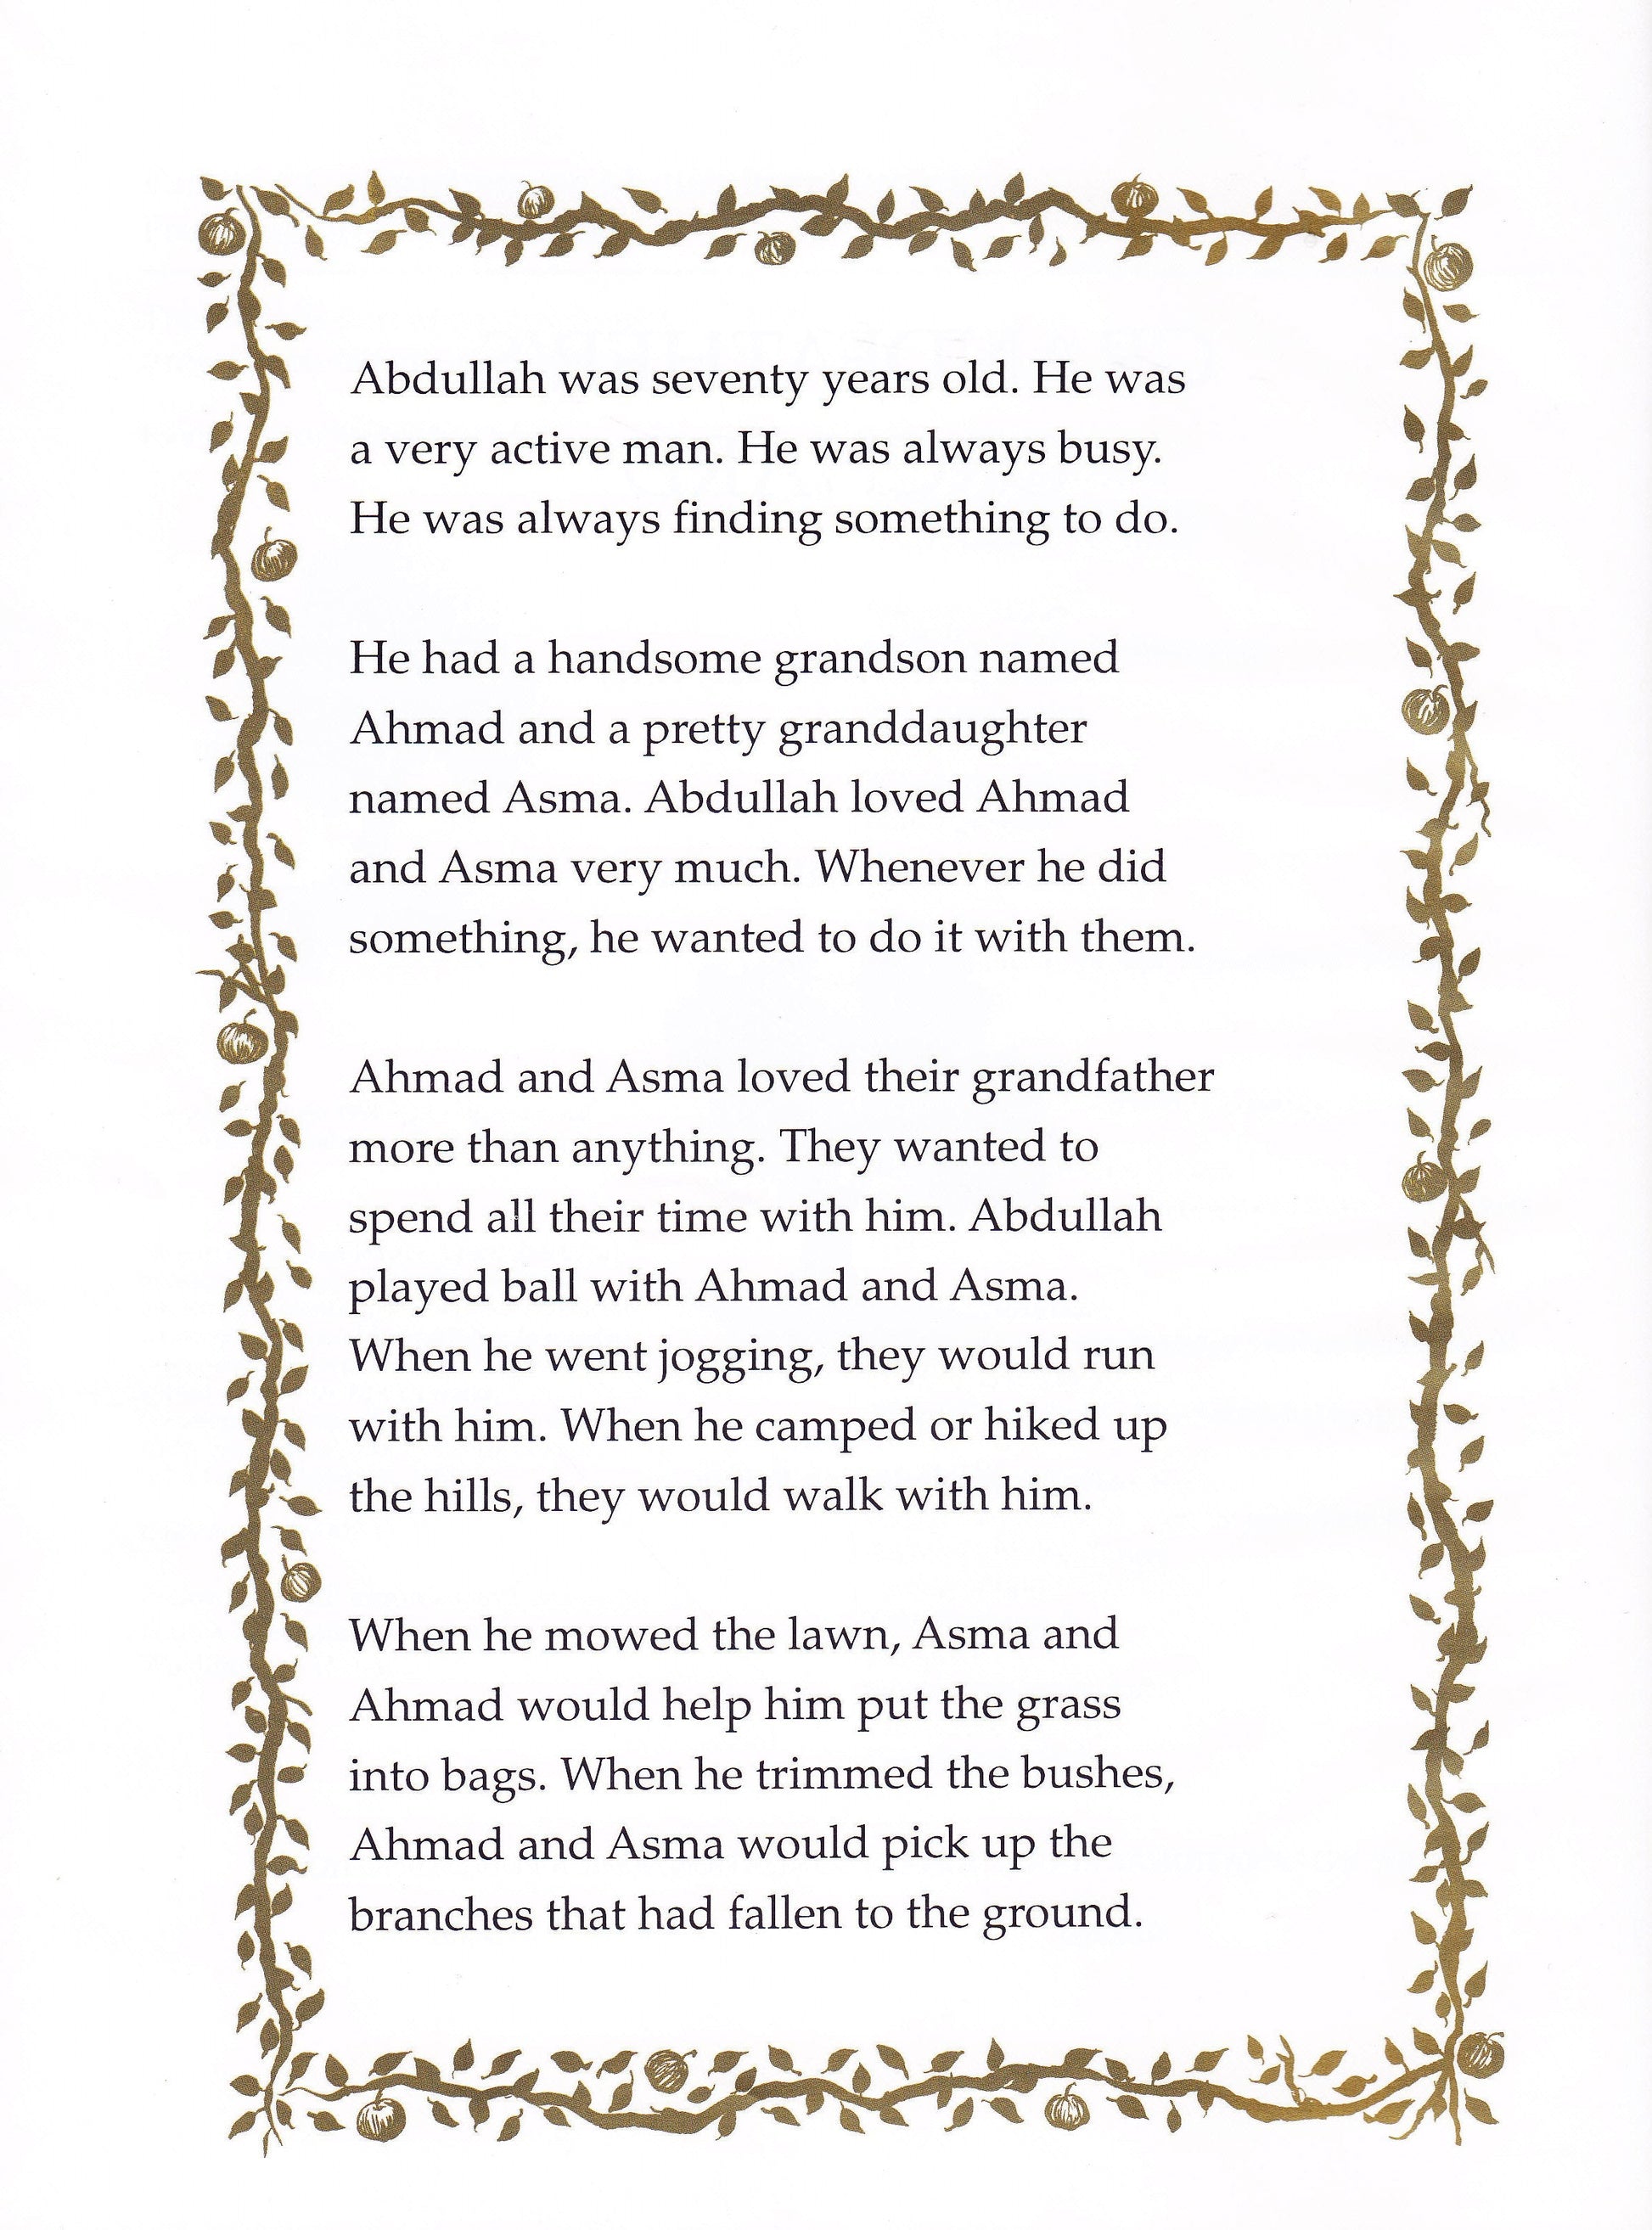 Abdullah was seventy years old. He was
a very active man. He was always busy.
He was always finding something to do.
He had a handsome grandson named
Ahmad and a pretty granddaughter
named Asma. Abdullah loved Ahmad
and Asma very much. Whenever he did
something, he wanted to do it with them.
Ahmad and Asma loved their grandfather
more than anything. They wanted to
spend all their time with him. Abdullah
played ball with Ahmad and Asma.
When he went jogging, they would run
with him. When he camped or hiked up
the hills, they would walk with him.
When he mowed the lawn, Asma and
Ahmad would help him put the grass
into bags. When he trimmed the bushes,
Ahmad and Asma would pick up the
branches that had fallen to the ground.